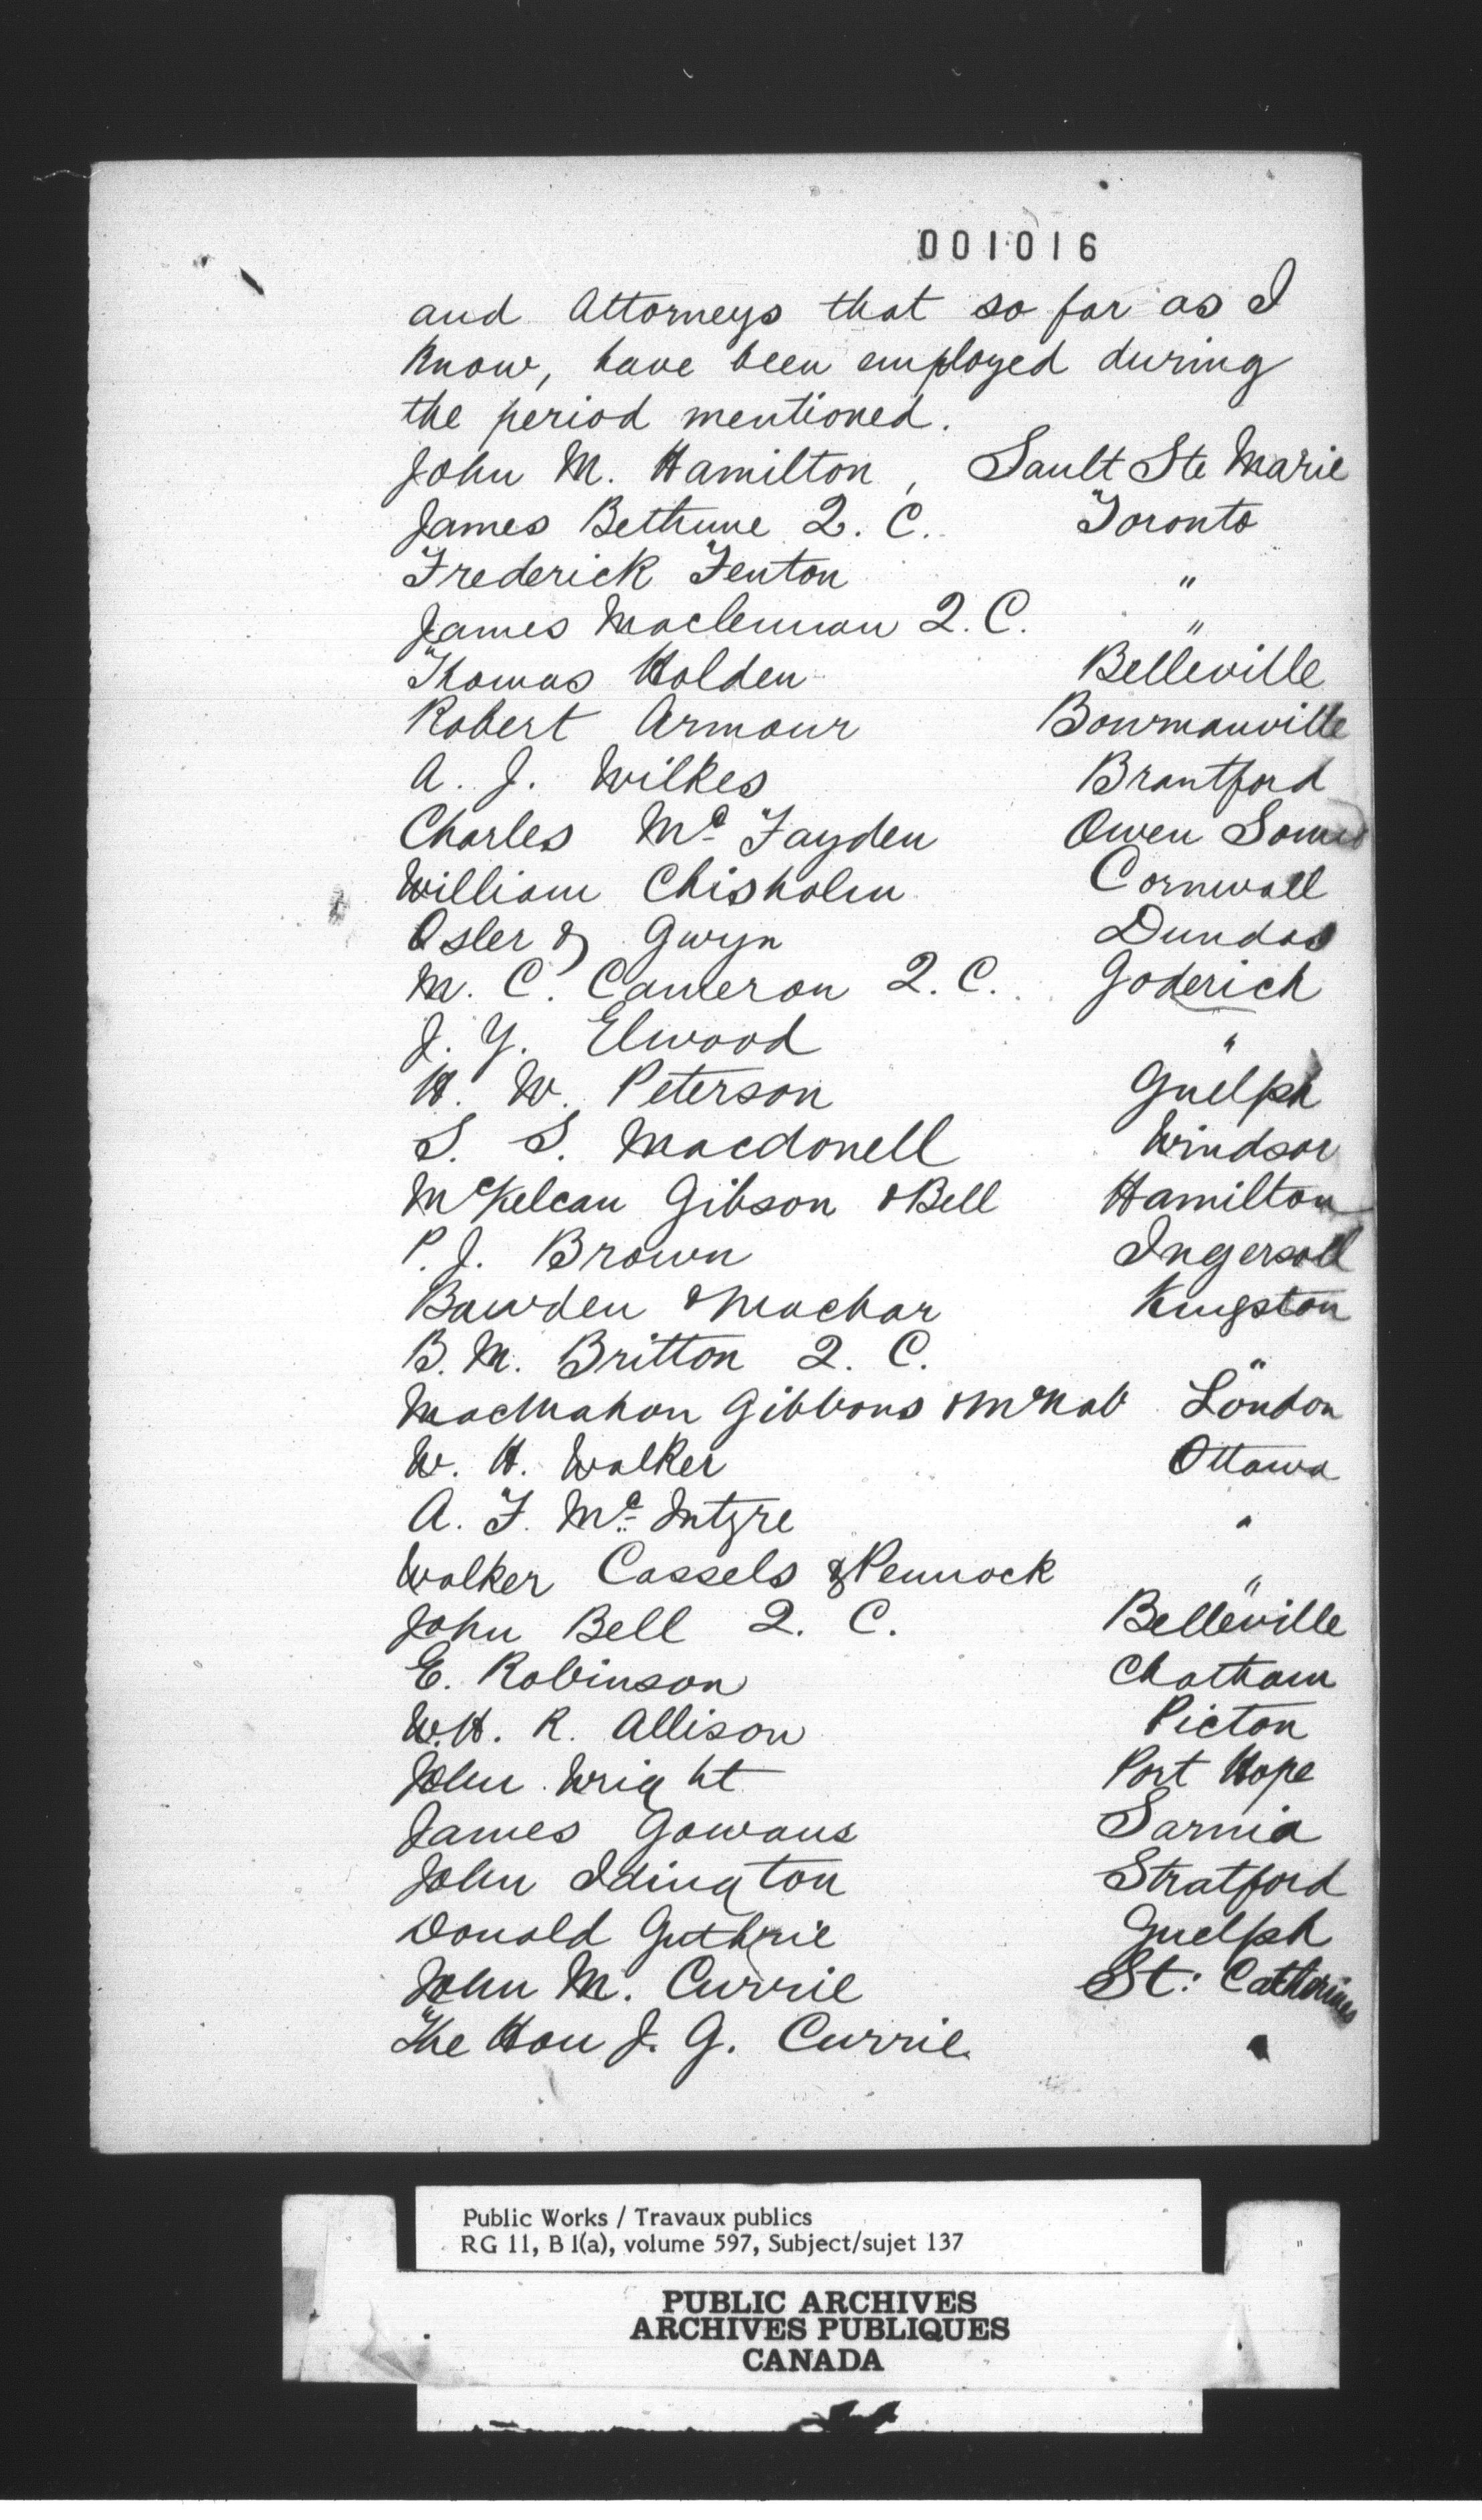 001016
and Attorneys that so far as I
Know, have been employed during
the period mentioned.
John M. Hamilton, Sault Ste Marie
James Bethune Q. C. Toronto
Frederick Fenton "
James Maclennan Q. C. "
Thomas Holden Belleville
Robert Armour Bowmanville
A. J. Wilkes Brantford
Charles Mc Fayden Owen Sound
William Chisholm Cornwall
Osler & Gwyn Dundas
M. C. Cameron Q. C. Goderich
J. Y. Elwood "
H. W. Peterson Guelph
S. S. Macdonell Windsor
McKelcan Gibson & Bell Hamilton
P. J. Brown Ingersoll
Bawden & Machar Kingston
B. M. Britton Q. C. "
MacMahon Gibbons & McNab London
W. H. Walker Ottawa
A. F. Mc Intyre "
Walker Cassels & Pennock "
John Bell Q. C. Belleville
E. Robinson Chatham
W. H. R. Allison Picton
John Wright Port Hope
James Gowans Sarnia
John Idington Stratford
Donald Guthrie Guelph
John M. Currie St: Catherines
The Hon J. G. Currie "
Public Works / Travaux publics
RG 11, B 1(a), volume 597, Subject/sujet 137
PUBLIC ARCHIVES
ARCHIVES PUBLIQUES
CANADA